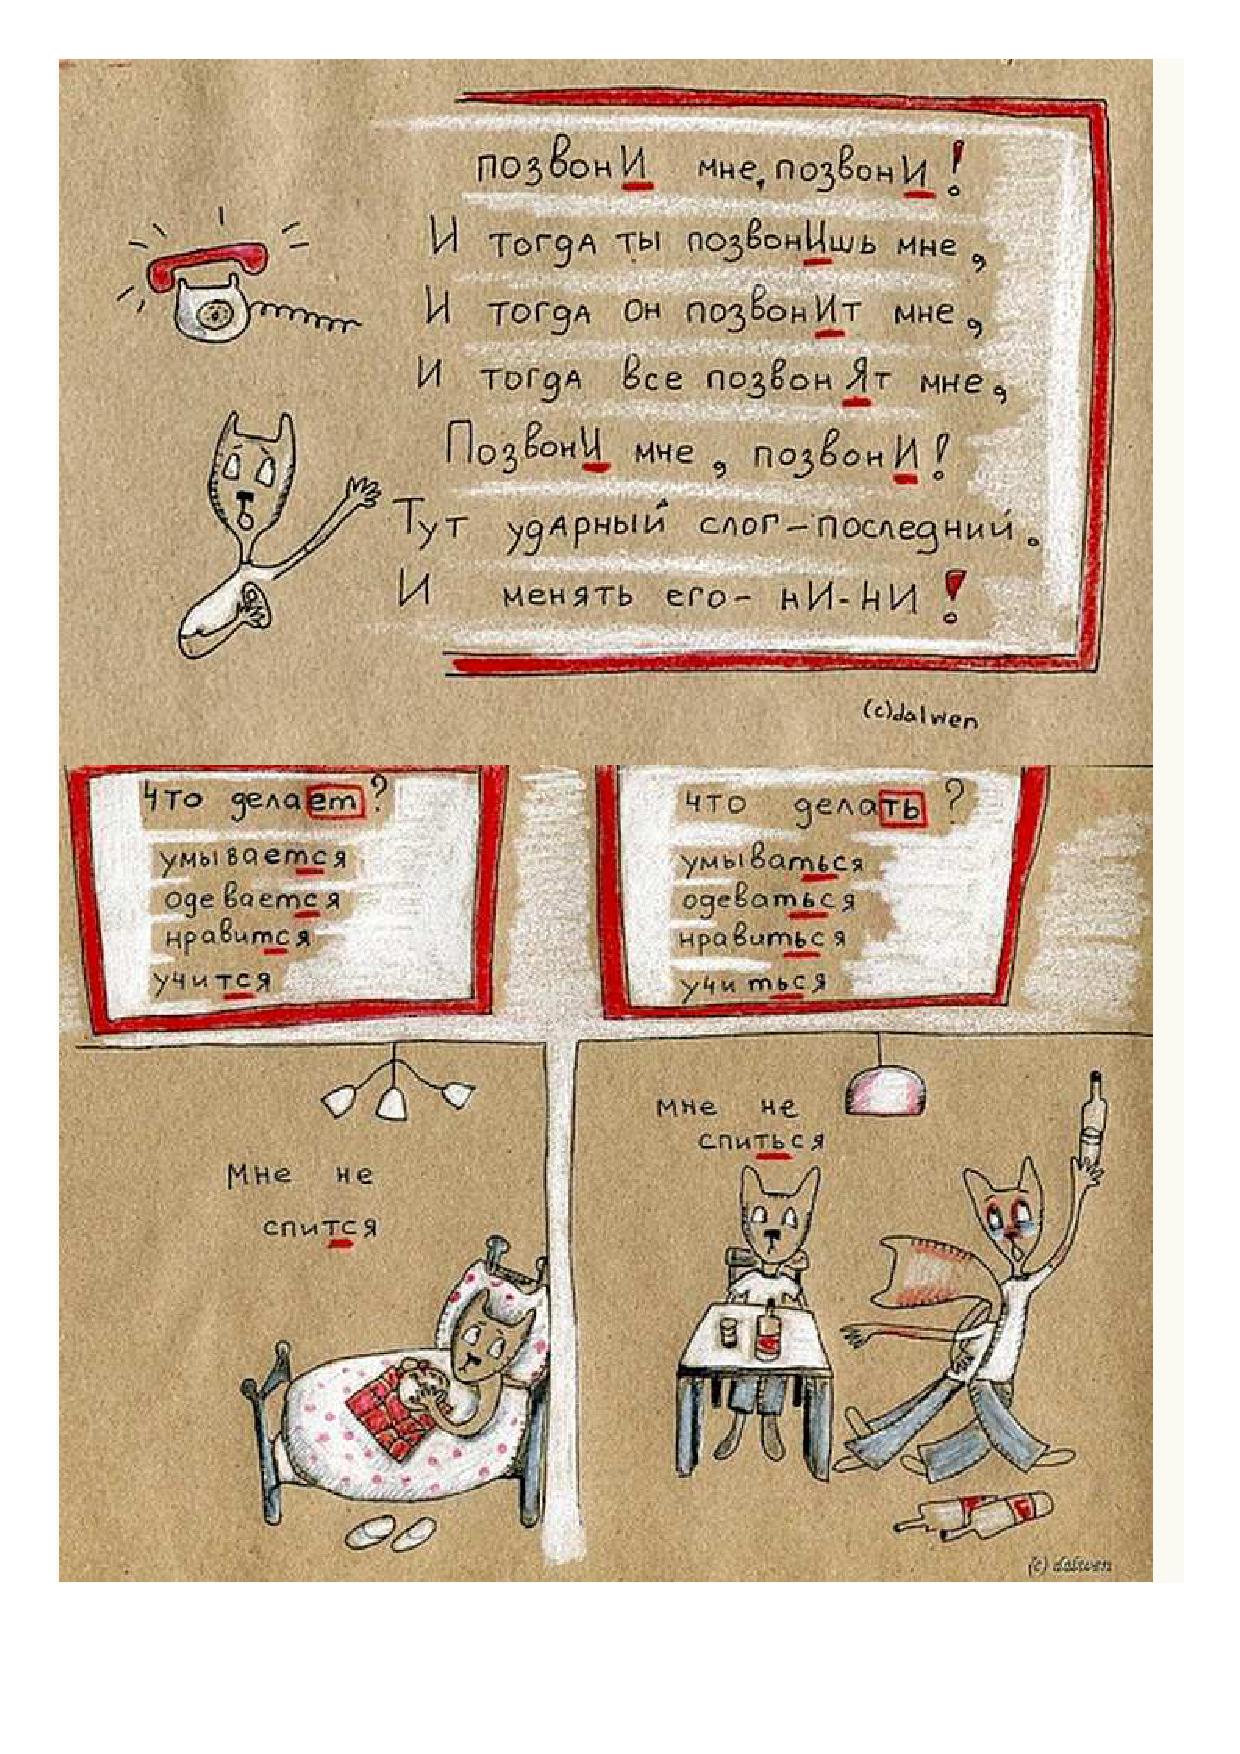 позвонИ мне, позвонИ!
И тогда ты позвонИшь мне,
И тогда он позвонИт мне,
И тогда все позвонЯт мне,
ПозвонИ мне, позвонИ!
Тут ударный слог-последний.
И менять его- нИ-нИ!
(c)dalwen
Что делает?
умывается
одевается
нравится
учится
что делать?
умываться
одеваться
нравиться
учиться
Мне не
спится
мне не
спиться
(c) dalwen